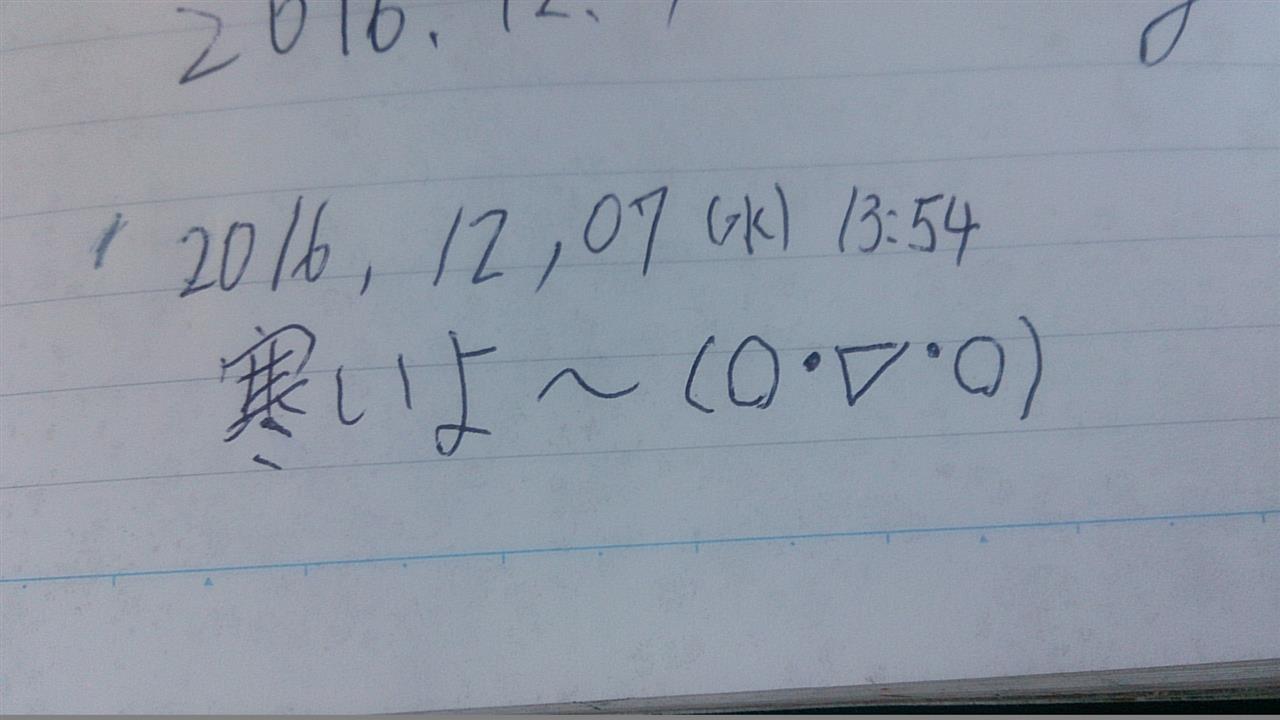 2016. 12.
2016, 12, 07 (水) 13:54
寒いよ～(○・▽・○)